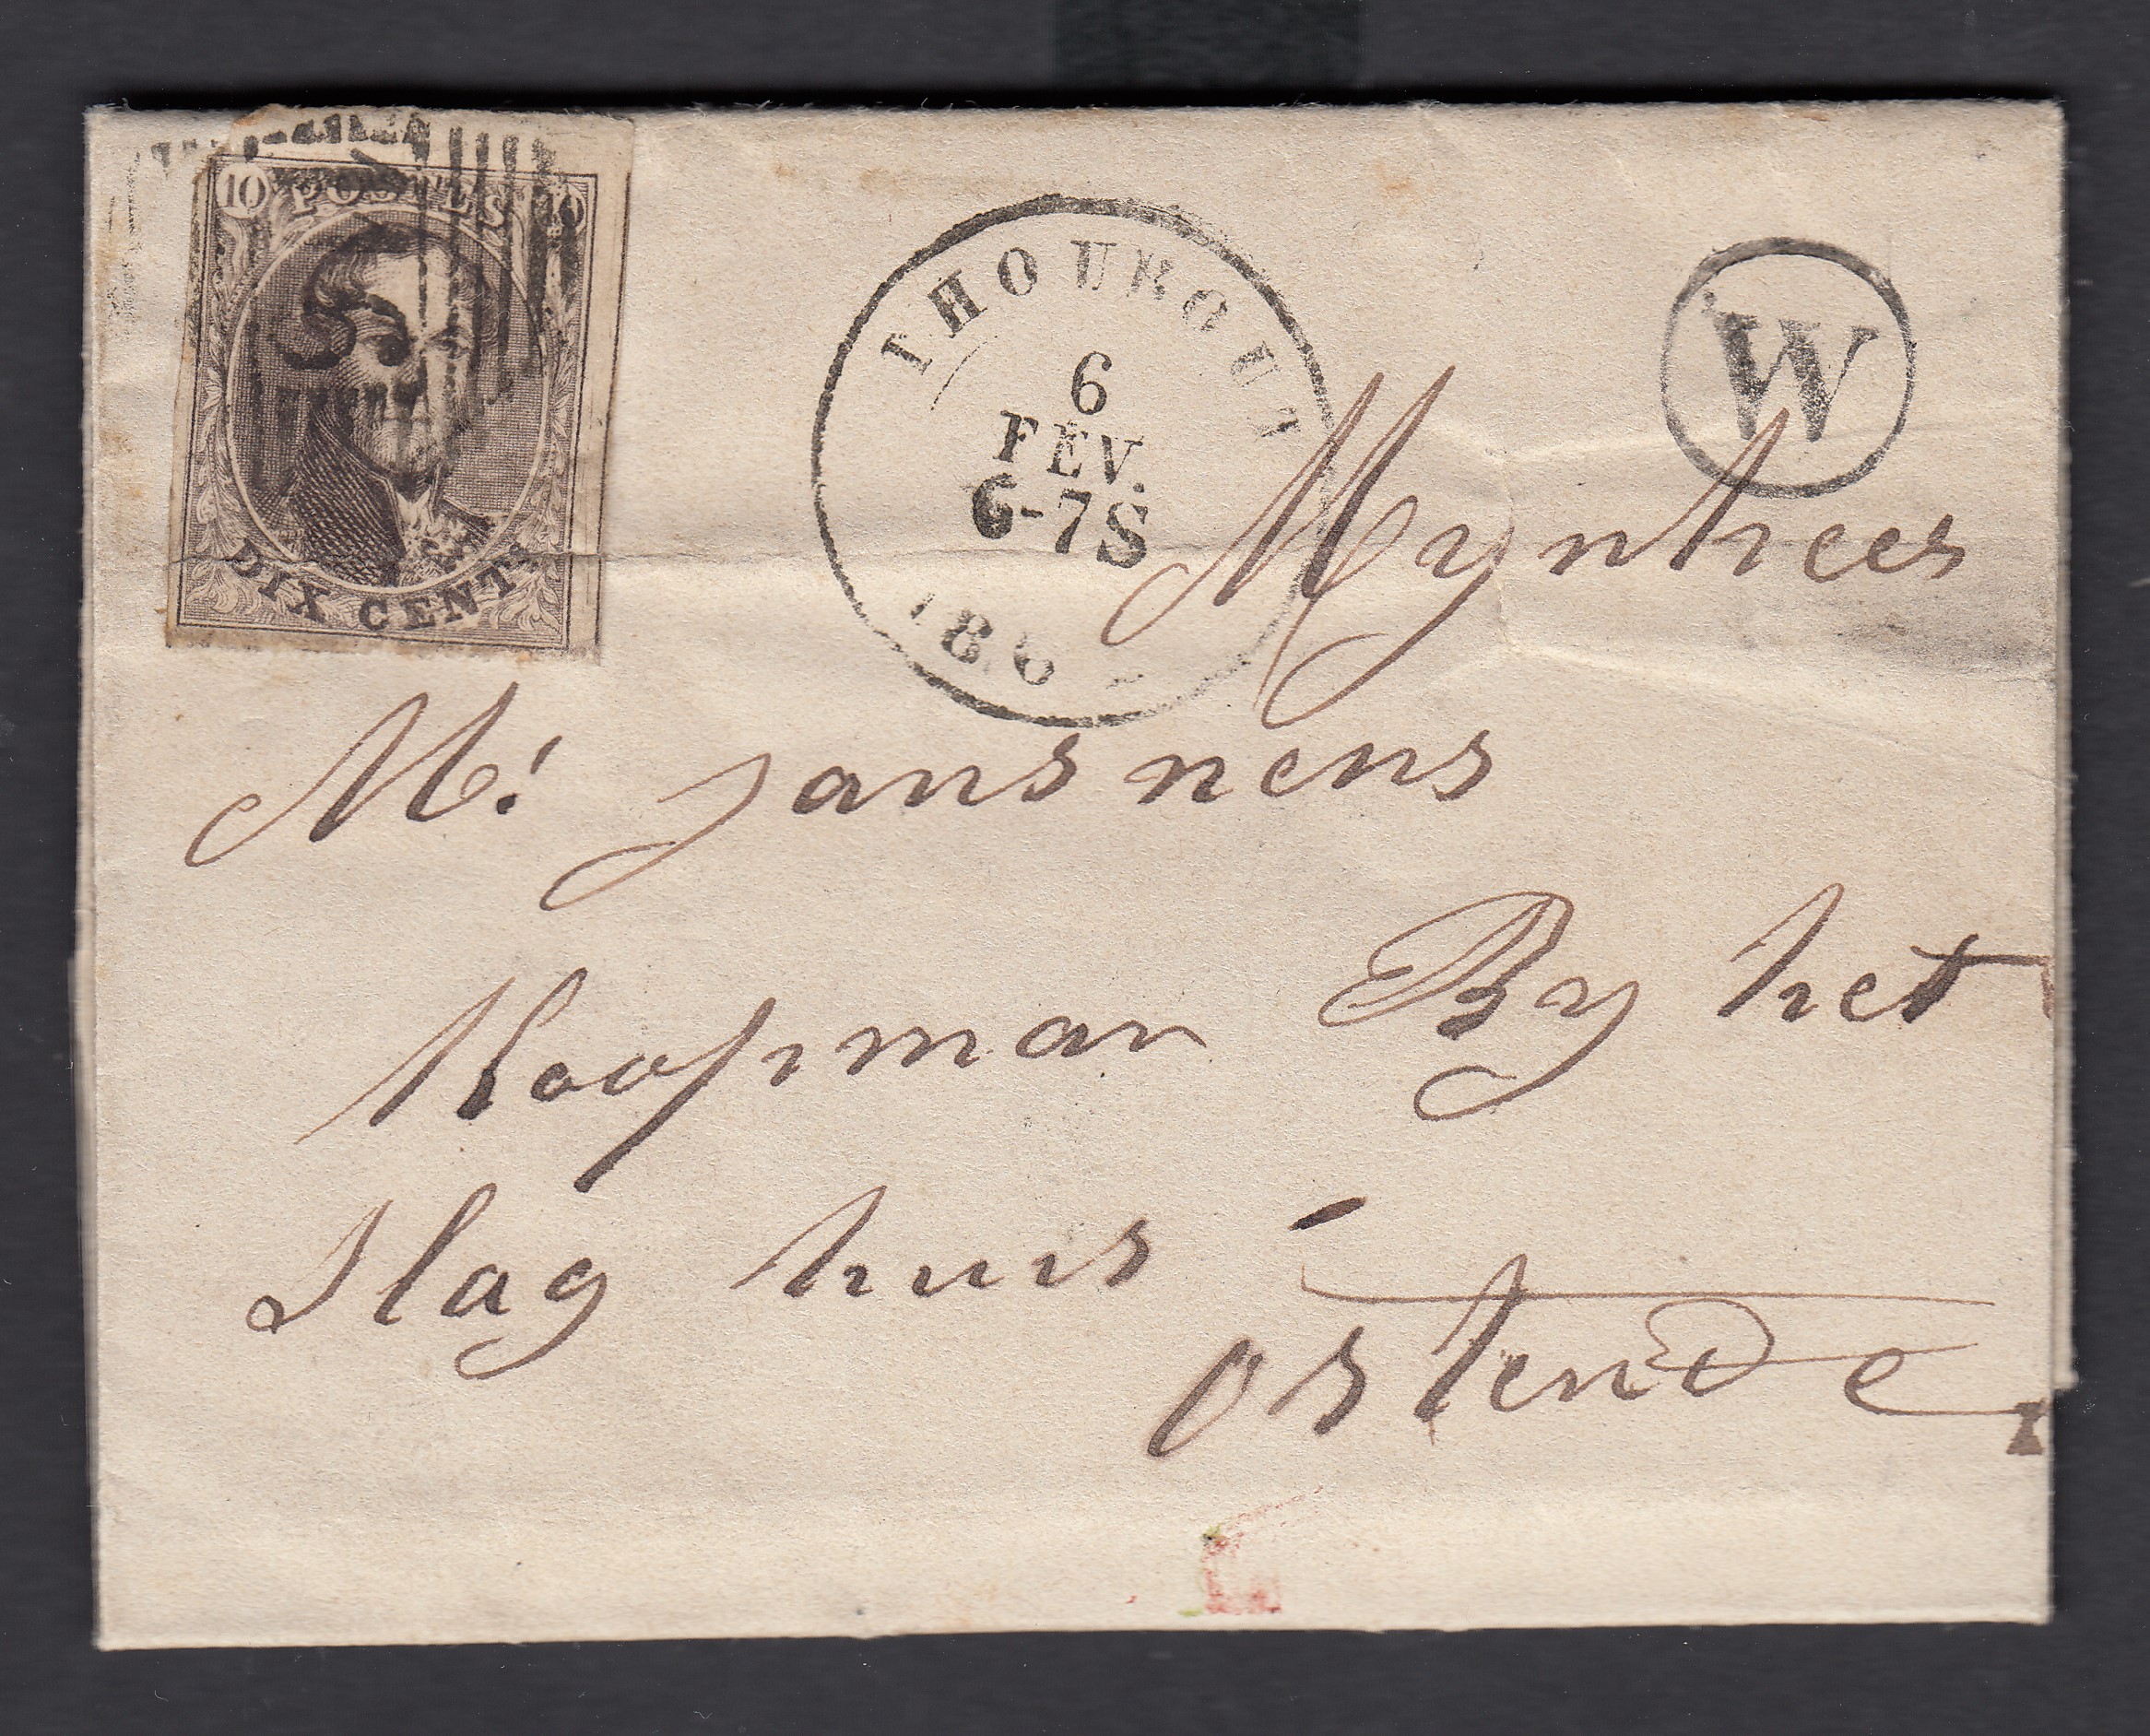 10 POSTES 10
DIX CENTS
THOUROUT
6
FEV.
6-7S
186
W
Mynheer
Mr Jansnens
Koopman By het
Slag huis
ostende